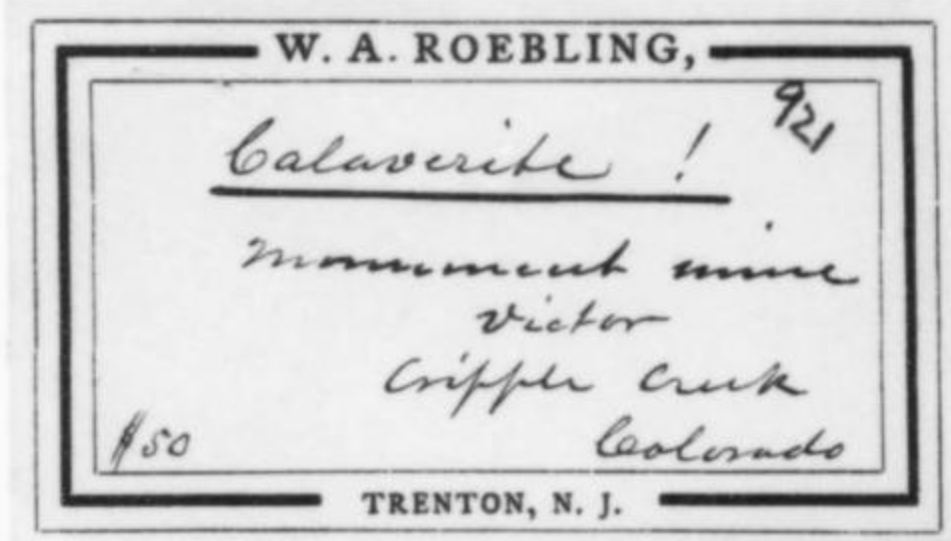 W. A. ROEBLING,
921
Calaverite !
Monument mine
Victor
Cripple Creek
$50
Colorado
TRENTON, N. J.